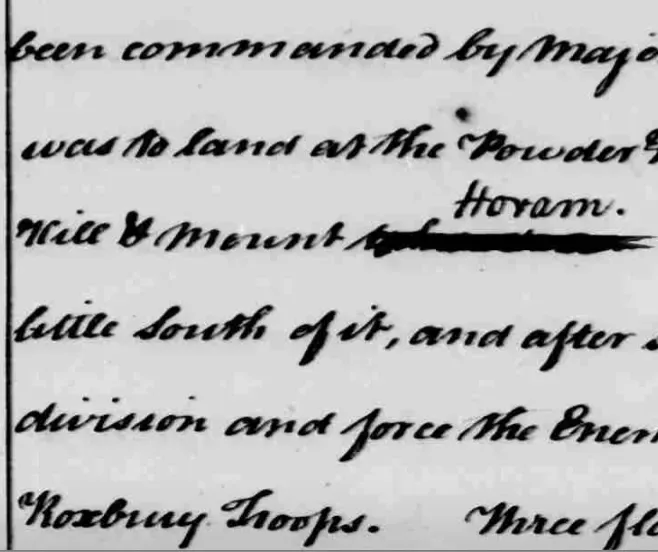 been commanded by Majo
was to land at the Powder
Horam.
Hill & Mount
little South of it, and after
division and force the Enem
Roxbury Troops. Three fl